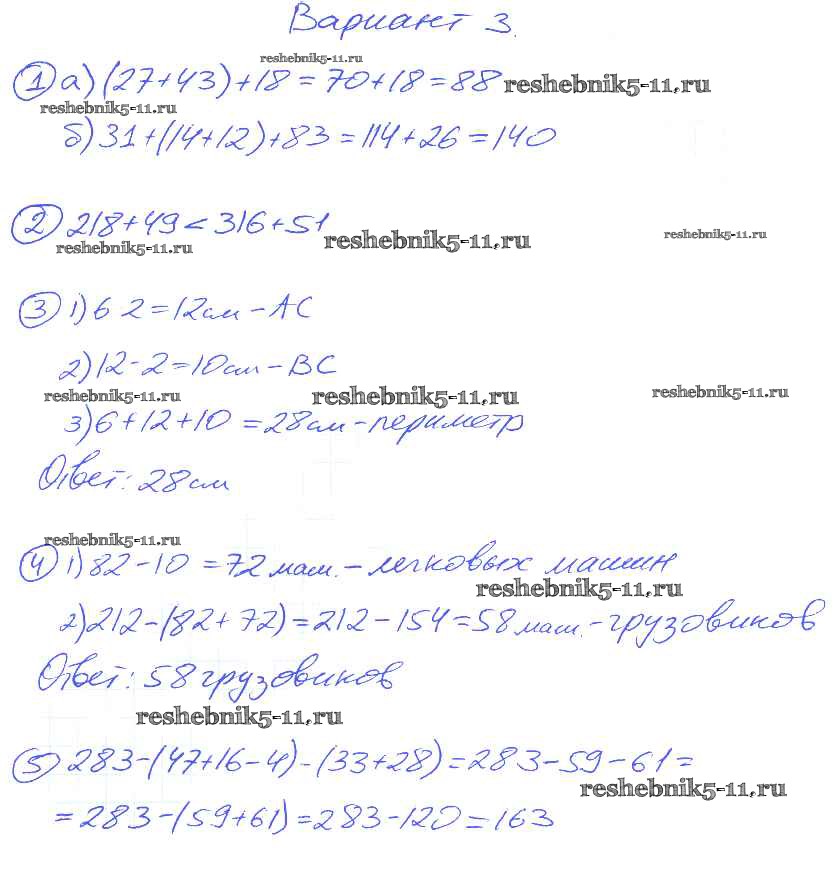 Вариант 3.
reshebnik5-11.ru
① а) (27+43)+18=70+18=88 reshebnik5-11.ru
reshebnik5-11.ru
б) 31+(14+12)+83=114+26=140
② 218+49<316+51
reshebnik5-11.ru reshebnik5-11.ru reshebnik5-11.ru
③ 1) 6 2=12см-AC
2) 12-2=10см-BC
reshebnik5-11.ru reshebnik5-11.ru reshebnik5-11.ru
3) 6+12+10=28см-периметр
Ответ: 28см
reshebnik5-11.ru
④ 1) 82-10=72маш.-легковых машин
reshebnik5-11.ru
2) 212-(82+72)=212-154=58маш.-грузовиков
Ответ: 58 грузовиков
reshebnik5-11.ru
⑤ 283-(47+16-4)-(33+28)=283-59-61=
reshebnik5-11.ru
=283-(59+61)=283-120=163